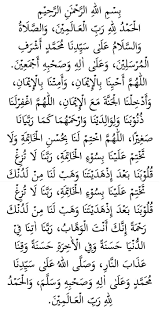 بِسْمِ اللهِ الرَّحْمٰنِ الرَّحِيْمِ
الْحَمْدُ لِلّٰهِ رَبِّ الْعَالَمِيْنَ، وَالصَّلَاةُ
وَالسَّلَامُ عَلَى سَيِّدِنَا مُحَمَّدٍ أَشْرَفِ
الْمُرْسَلِيْنَ، وَعَلَى اٰلِهِ وَصَحْبِهِ أَجْمَعِيْنَ.
اَللّٰهُمَّ أَحْيِنَا بِالْإِيْمَانِ، وَأَمِتْنَا بِالْإِيْمَانِ،
وَأَدْخِلْنَا الْجَنَّةَ مَعَ الْإِيْمَانِ، اَللّٰهُمَّ اغْفِرْلَنَا
ذُنُوْبَنَا وَلِوَالِدَيْنَا وَارْحَمْهُمَا كَمَا رَبَّيَانَا
صَغِيْرًا، اَللّٰهُمَّ اخْتِمْ لَنَا بِحُسْنِ الْخَاتِمَةِ وَلَا
تَخْتِمْ عَلَيْنَا بِسُوْءِ الْخَاتِمَةِ، رَبَّنَا لَا تُزِغْ
قُلُوْبَنَا بَعْدَ إِذْهَدَيْتَنَا وَهَبْ لَنَا مِنْ لَدُنْكَ
تَخْتِمْ عَلَيْنَا بِسُوْءِ الْخَاتِمَةِ، رَبَّنَا لَا تُزِغْ
قُلُوْبَنَا بَعْدَ إِذْهَدَيْتَنَا وَهَبْ لَنَا مِنْ لَدُنْكَ
رَحْمَةً إِنَّكَ أَنْتَ الْوَهَّابُ، رَبَّنَا اٰتِنَا فِي
الدُّنْيَا حَسَنَةً وَفِي الْاٰخِرَةِ حَسَنَةً وَقِنَا
عَذَابَ النَّارِ، وَصَلَّى اللهُ عَلَى سَيِّدِنَا
مُحَمَّدٍ وَعَلَى اٰلِهِ وَصَحْبِهِ وَسَلَّمَ، وَالْحَمْدُ
لِلّٰهِ رَبِّ الْعَالَمِيْنَ.